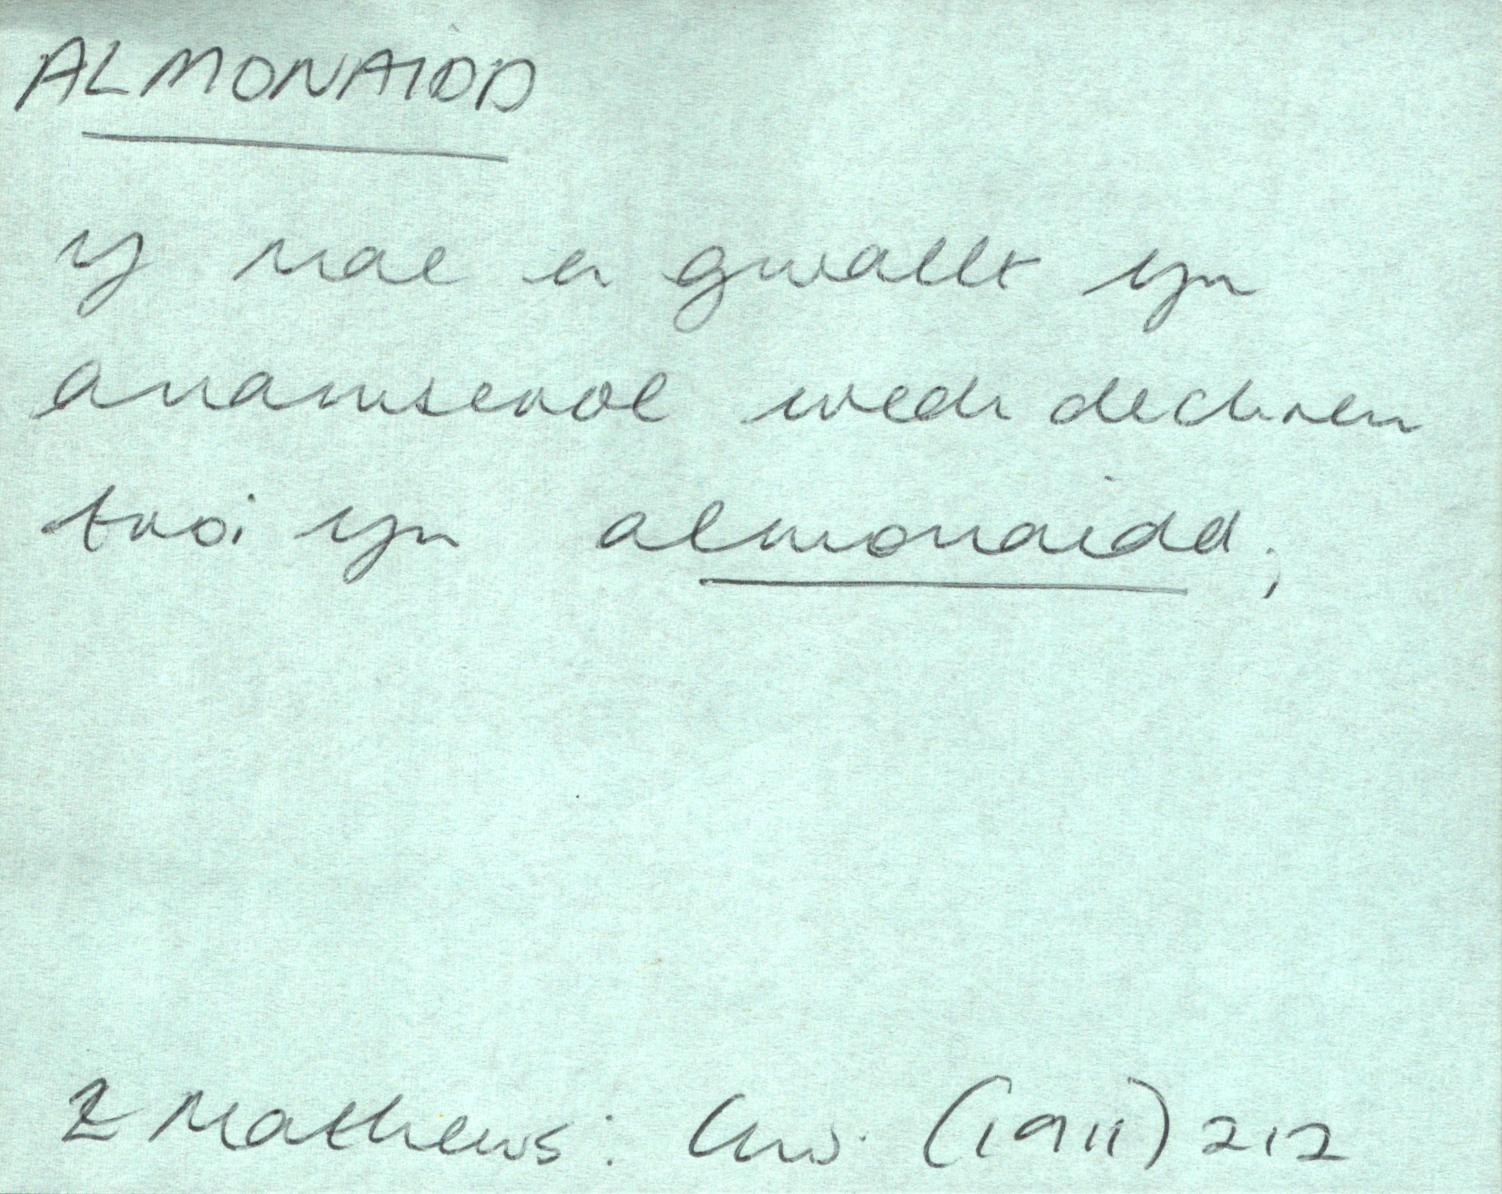 ALMONAIDD
y mae ei gwallt yn
anamserol wedi dechreu
troi yn almonaidd;
E Mathews: (1911) 212